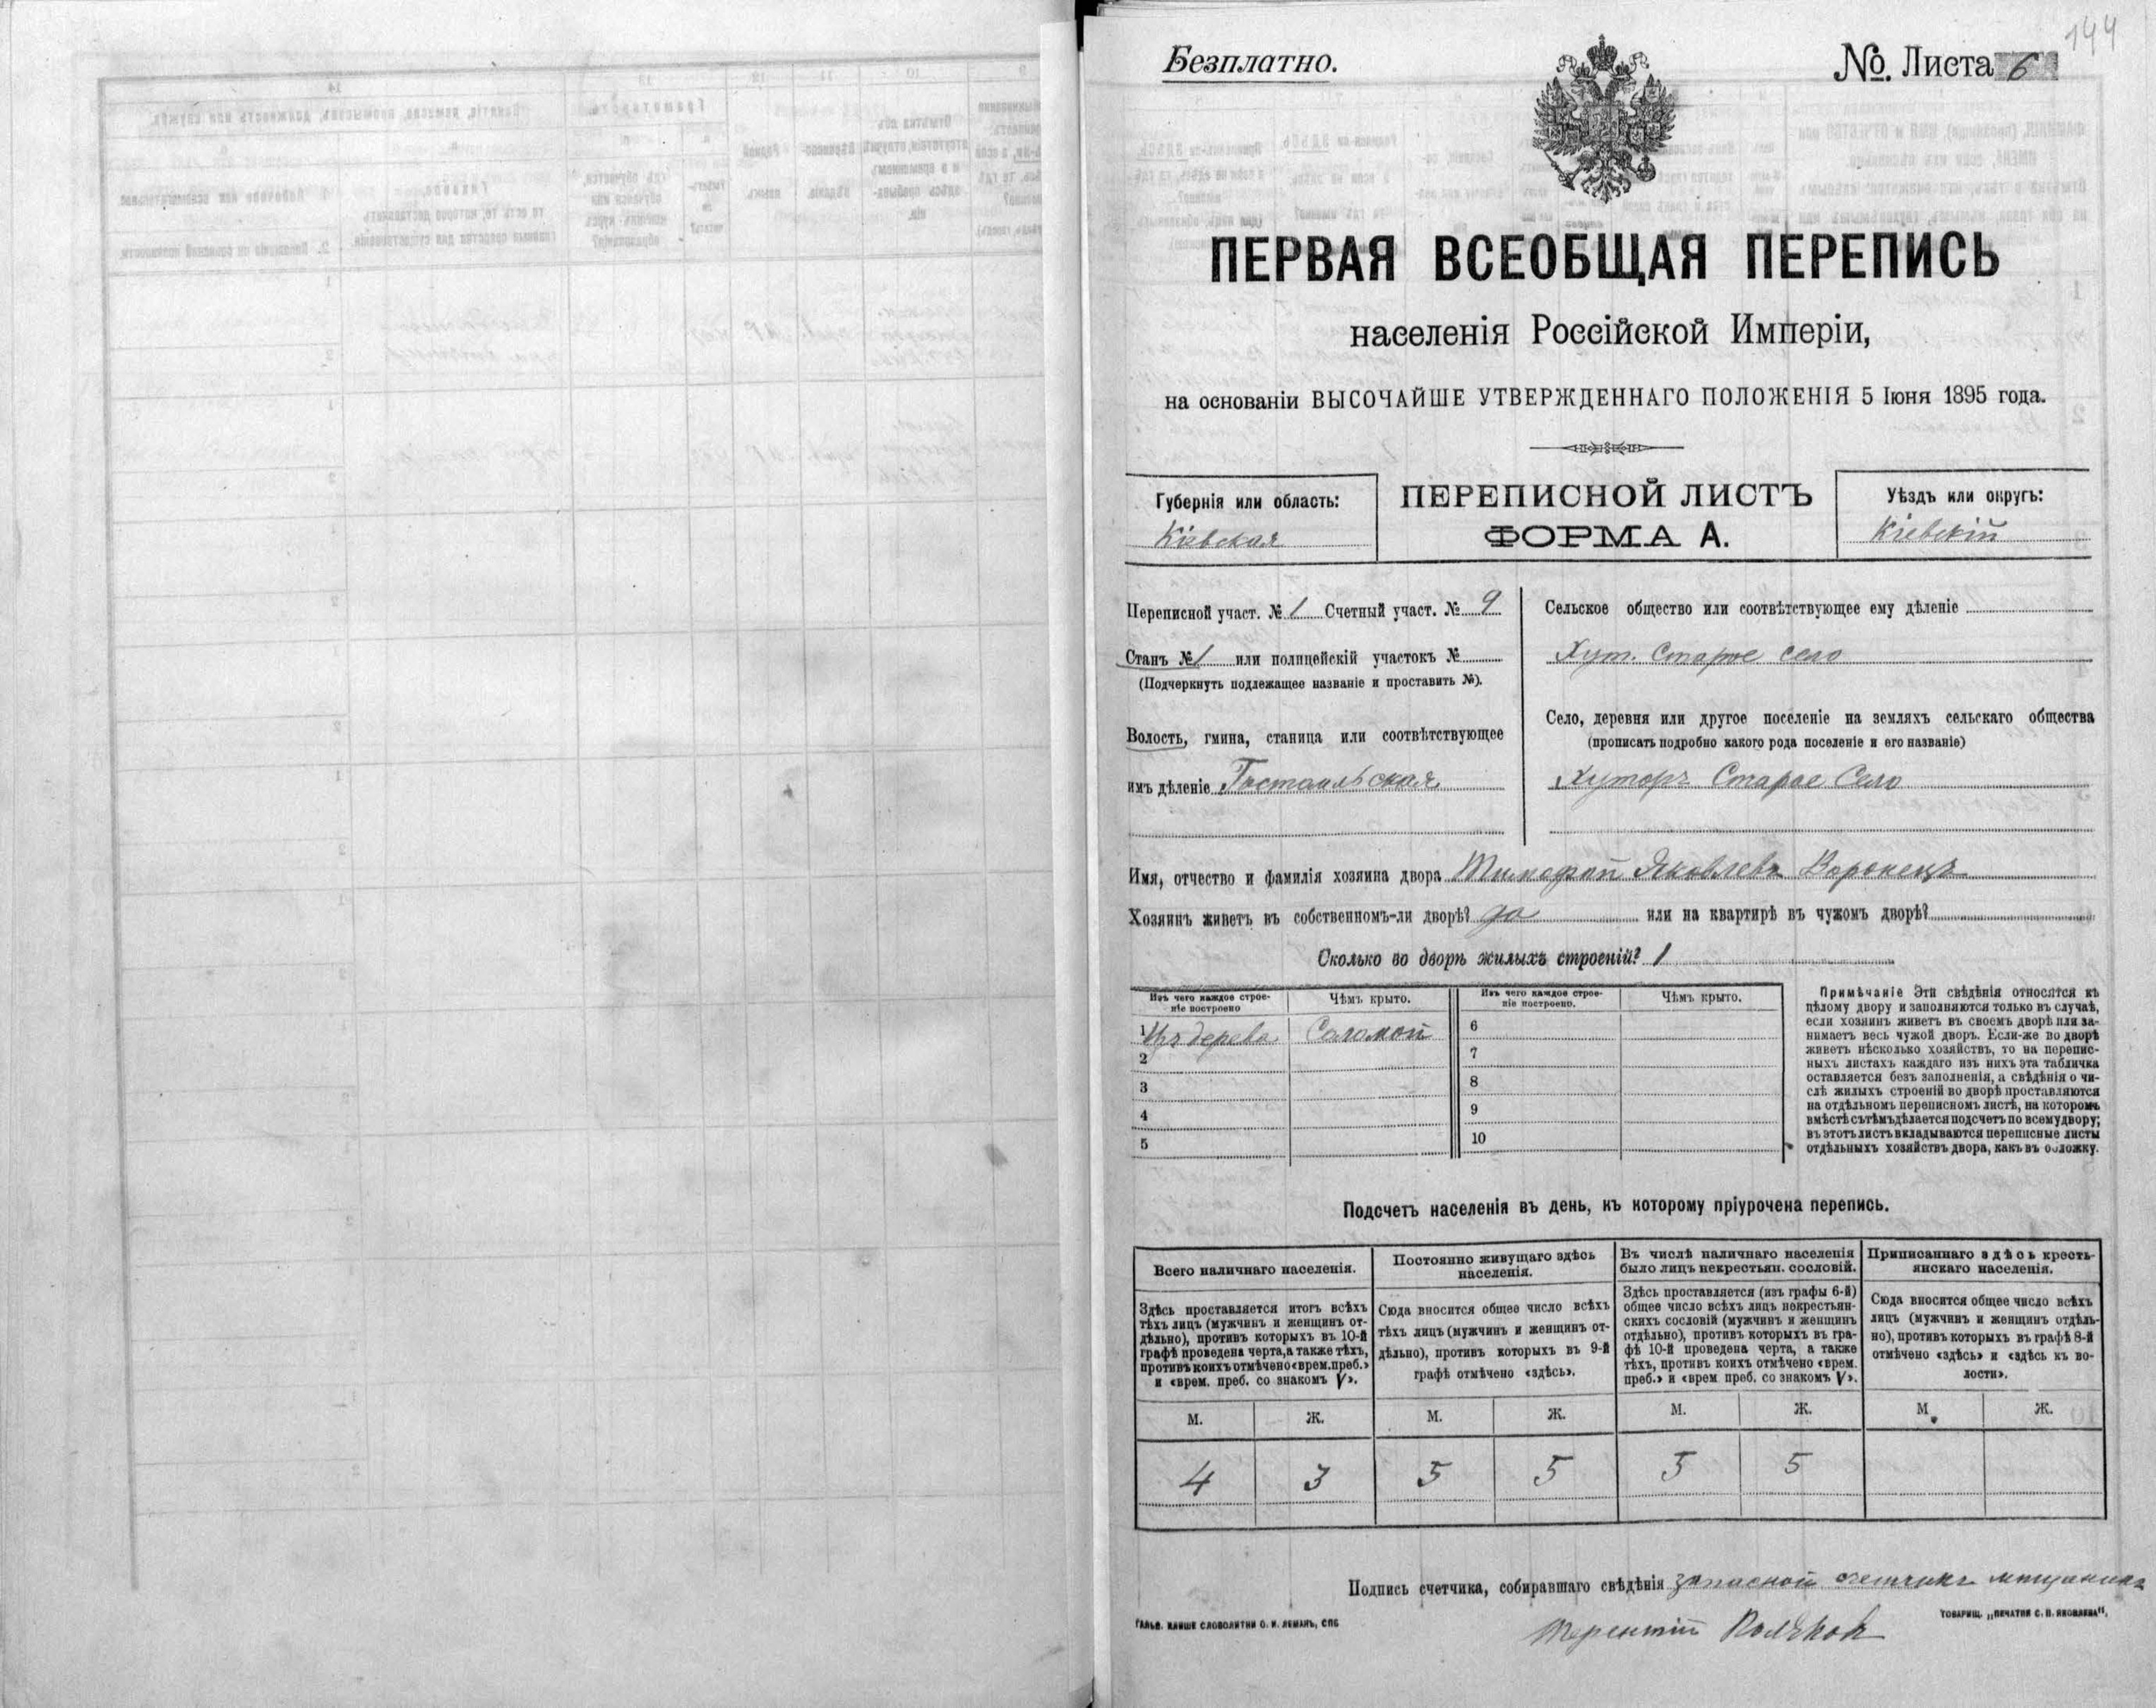 144
Безплатно.
№. Листа 6
ПЕРВАЯ ВСЕОБЩАЯ ПЕРЕПИСЬ
населенія Россійской Имперіи,
на основаніи ВЫСОЧАЙШЕ УТВЕРЖДЕННАГО ПОЛОЖЕНІЯ 5 Іюня 1895 года.
Губернія или область:
Кіевская
ПЕРЕПИСНОЙ ЛИСТЪ
ФОРМА А.
Уѣздъ или округъ:
Кіевскій
Переписной участ. № 1 Счетный участ. № 9
Станъ № 1 или полицейскій участокъ №
(Подчеркнуть подлежащее названіе и проставить №).
Волость, гмина, станица или соотвѣтствующее
имъ дѣленіе Гостомльская
Сельское общество или соотвѣтствующее ему дѣленіе
Хут. Старое село
Село, деревня или другое поселеніе на земляхъ сельскаго общества
(прописать подробно какого рода поселеніе и его названіе)
Хуторъ Старое Село
Имя, отчество и фамилія хозяина двора Тимофей Яковлевъ Воронецъ
Хозяинъ живетъ въ собственномъ-ли дворѣ? да или на квартирѣ въ чужомъ дворѣ?
Сколько во дворѣ жилыхъ строеній? 1
Изъ чего каждое строе-
ніе построено
Чѣмъ крыто.
Изъ чего каждое строе-
ніе построено.
Чѣмъ крыто.
1 Изъ дерева Соломой
2
3
4
5
6
7
8
9
10
Примѣчаніе Эти свѣдѣнія относятся къ
цѣлому двору и заполняются только въ случаѣ,
если хозяинъ живетъ въ своемъ дворѣ или за-
нимаетъ весь чужой дворъ. Если-же во дворѣ
живетъ нѣсколько хозяйствъ, то на перепис-
ныхъ листахъ каждаго изъ нихъ эта табличка
оставляется безъ заполненія, а свѣдѣнія о чи-
слѣ жилыхъ строеній во дворѣ проставляются
на отдѣльномъ переписномъ листѣ, на которомъ
вмѣстѣ съ тѣмъ дѣлается подсчетъ по всему двору;
въ этотъ листъ вкладываются переписные листы
отдѣльныхъ хозяйствъ двора, какъ въ обложку.
Подсчетъ населенія въ день, къ которому пріурочена перепись.
Всего наличнаго населенія.
Постоянно живущаго здѣсь
населенія.
Въ числѣ наличнаго населенія
было лицъ некрестьян. сословій.
Приписаннаго здѣсь кресть-
янскаго населенія.
Здѣсь проставляется итогъ всѣхъ
тѣхъ лицъ (мужчинъ и женщинъ от-
дѣльно), противъ которыхъ въ 10-й
графѣ проведена черта, а также тѣхъ,
противъ коихъ отмѣчено «врем. преб.»
и «врем. преб. со знакомъ V».
Сюда вносится общее число всѣхъ
тѣхъ лицъ (мужчинъ и женщинъ от-
дѣльно), противъ которыхъ въ 9-й
графѣ отмѣчено «здѣсь».
Здѣсь проставляется (изъ графы 6-й)
общее число всѣхъ лицъ некрестьян-
скихъ сословій (мужчинъ и женщинъ
отдѣльно), противъ которыхъ въ гра-
фѣ 10-й проведена черта, а также
тѣхъ, противъ коихъ отмѣчено «врем.
преб.» и «врем преб. со знакомъ V».
Сюда вносится общее число всѣхъ
лицъ (мужчинъ и женщинъ отдѣль-
но), противъ которыхъ въ графѣ 8-й
отмѣчено «здѣсь» и «здѣсь къ во-
лости».
М. Ж. М. Ж. М. Ж. М. Ж.
4 3 5 5 5 5
Подпись счетчика, собиравшаго свѣдѣнія запасной счетчикъ мещанинъ
Терентій
ГАЛЬВ. КЛИШЕ СЛОВОЛИТНИ О. И. ЛЕМАНЪ, СПБ
ТОВАРИЩ. „ПЕЧАТНЯ С. П. ЯКОВЛЕВА“.